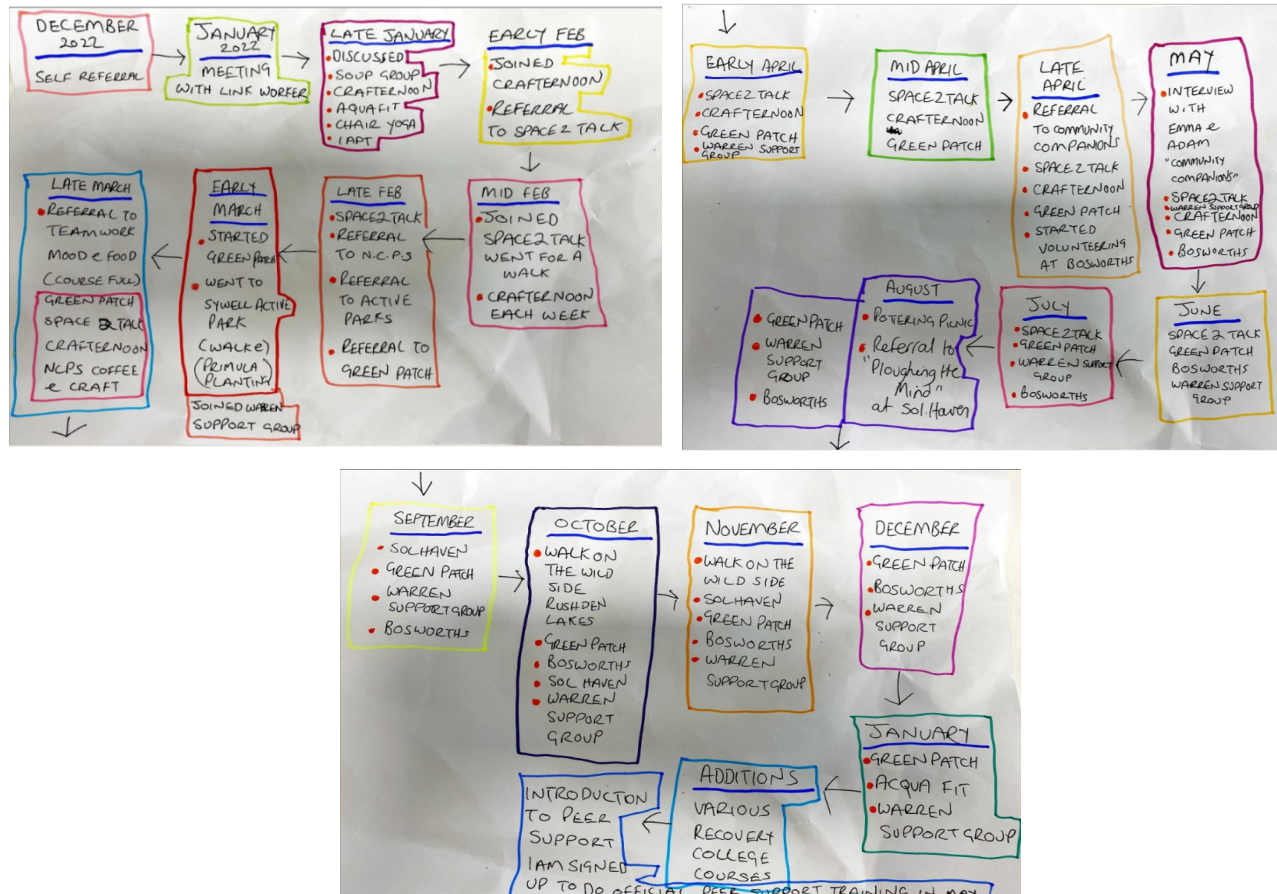 DECEMBER
2022
SELF REFERRAL
JANUARY
2022
MEETING
WITH LINK WORKER
LATE JANUARY
DISCUSSED
SOUP GROUP
CRAFTERNOON
AQUAFIT
CHAIR YOGA
IAPT
EARLY FEB
JOINED
CRAFTERNOON
REFERRAL
TO SPACE2 TALK
MID FEB
JOINED
SPACE2TALK
WENT FOR A
WALK
CRAFTERNOON
EACH WEEK
LATE FEB
SPACE2TALK
REFERRAL
TO N.C.P.S
REFERRAL
TO ACTIVE
PARKS
REFERRAL TO
GREEN PATCH
EARLY
MARCH
STARTED
GREEN PATCH
WENT TO
SYWELL ACTIVE
PARK
(WALK &)
(PRIMULA)
PLANTING)
JOINED WARREN
SUPPORT GROUP
LATE MARCH
REFERRAL TO
TEAMWORK
MOOD & FOOD
(COURSE FULL)
GREEN PATCH
SPACE 2 TALK
CRAFTERNOON
NCPS COFFEE
& CRAFT
EARLY APRIL
SPACE2TALK
CRAFTERNOON
GREEN PATCH
WARREN SUPPORT
GROUP
MID APRIL
SPACE2TALK
CRAFTERNOON
GREEN PATCH
LATE
APRIL
REFERRAL
TO COMMUNITY
COMPANIONS
SPACE 2 TALK
CRAFTERNOON
GREEN PATCH
STARTED
VOLUNTEERING
AT BOSWORTHS
MAY
INTERVIEW
WITH
EMMA &
ADAM
"COMMUNITY
COMPANIONS"
SPACE2TALK
WARREN SUPPORT GROUP
CRAFTERNOON
GREEN PATCH
BOSWORTHS
JUNE
SPACE 2 TALK
GREEN PATCH
BOSWORTHS
WARREN SUPPORT
GROUP
JULY
SPACE2TALK
GREEN PATCH
WARREN SUPPORT
GROUP
BOSWORTHS
AUGUST
POTERING PICNIC
Referral to
"Ploughing the
Mind"
at Sol.Haven
GREEN PATCH
WARREN
SUPPORT
GROUP
BOSWORTHS
SEPTEMBER
SOLHAVEN
GREEN PATCH
WARREN
SUPPORT GROUP
BOSWORTHS
OCTOBER
WALK ON
THE WILD
SIDE
RUSHDEN
LAKES
GREEN PATCH
BOSWORTHS
SOL HAVEN
WARREN
SUPPORT
GROUP
NOVEMBER
WALK ON THE
WILD SIDE
SOLHAVEN
GREEN PATCH
BOSWORTHS
WARREN
SUPPORT GROUP
DECEMBER
GREEN PATCH
BOSWORTHS
WARREN
SUPPORT
GROUP
JANUARY
GREEN PATCH
ACQUA FIT
WARREN
SUPPORT GROUP
ADDITIONS
VARIOUS
RECOVERY
COLLEGE
COURSES
INTRODUCTON
TO PEER
SUPPORT
I AM SIGNED
UP TO DO OFFICIAL PEER SUPPORT TRAINING IN MAY